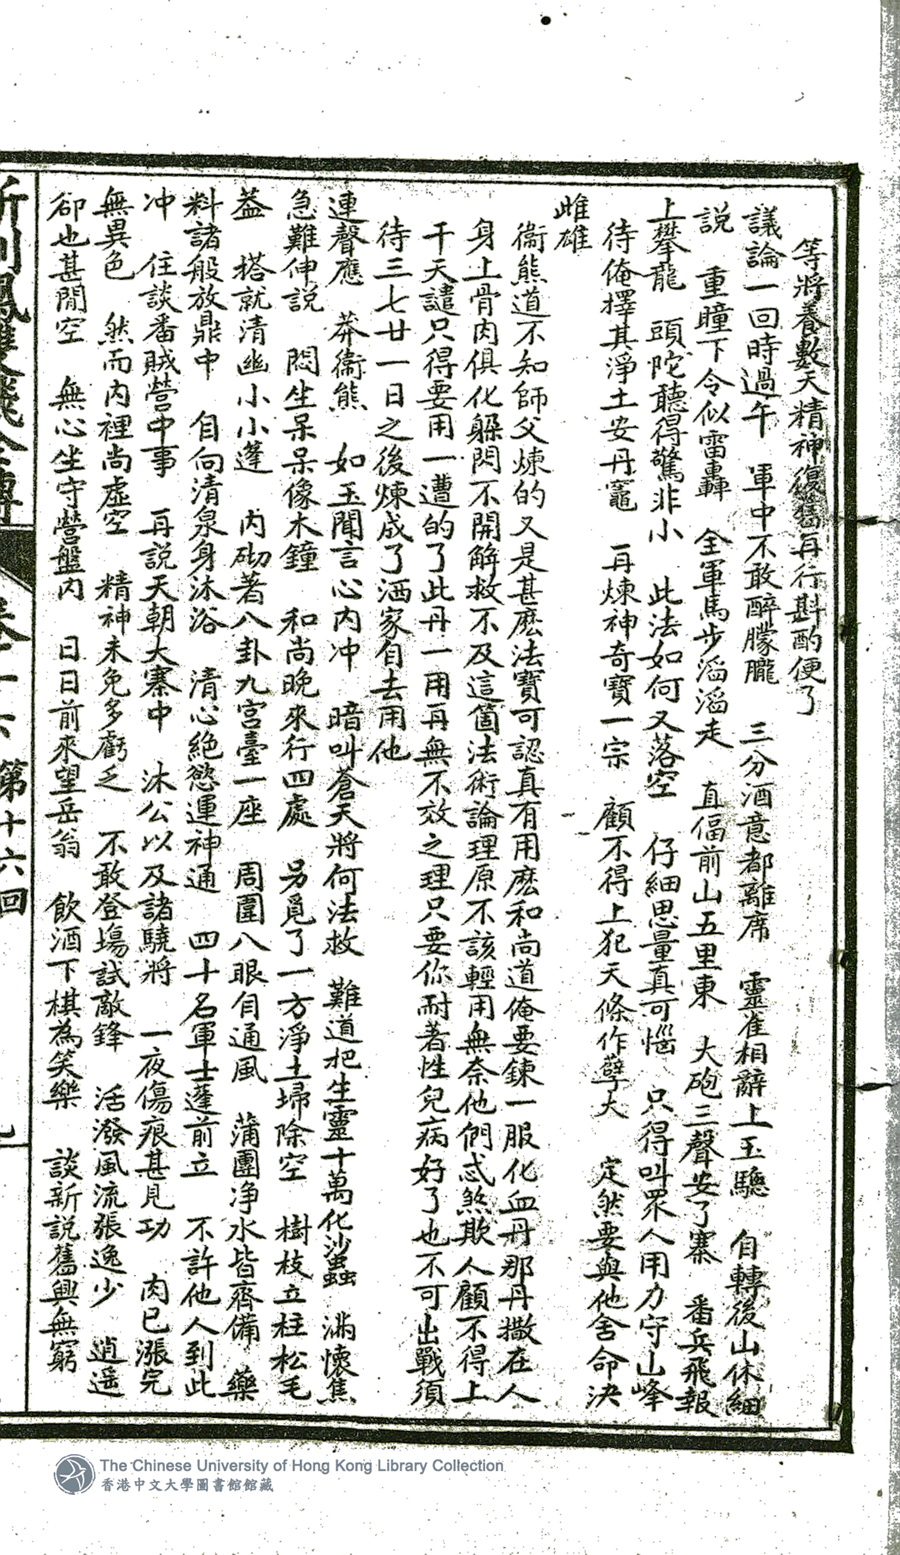 等將養數天精神復舊再行斟酌便了
議論一回時過午　軍中不敢醉朦朧　三分酒意都離席　靈崔相辭上玉驄　自轉後山休細
說　重瞳下令似雷轟　全軍馬步滔滔走　直偪前山五里東　大砲三聲安了寨　番兵飛報
上攀龍　頭陀聽得驚非小　此法如何又落空　仔細思量真可惱　只得叫眾人用力守山峰
待俺擇其淨土安丹竈　再煉神奇寶一宗　顧不得上犯天條作孽大　定然要與他舍命決
雌雄
衞熊道不知師父煉的又是甚麽法寶可認真有用麽和尚道俺要鍊一服化血丹那丹撒在人
身上骨肉俱化躲閃不開解救不及這箇法術論理原不該輕用無奈他們忒煞欺人顧不得上
干天譴只得要用一遭的了此丹一用再無不效之理只要你耐著性兒病好了也不可出戰須
待三七廿一日之後煉成了洒家自去用他
連聲應　莽衞熊　如玉聞言心內冲　暗叫蒼天將何法救　難道把生靈十萬化沙蟲　滿懷焦
急難伸說　悶坐呆呆像木鐘　和尚晚來行四處　另覓了一方淨土埽除空　樹枝立柱松毛
葢　搭就清幽小小蓬　內砌著八卦九宮臺一座　周圍八眼自通風　蒲團净水皆齊備　藥
料諸般放鼎中　自向清泉身沐浴　清心絶慾運神通　四十名軍士蓬前立　不許他人到此
冲　住談番賊營中事　再說天朝大寨中　沐公以及諸驍將　一夜傷痕甚見功　肉已漲完
無異色　然而內裡尚虛空　精神未免多虧乏　不敢登塲試敵鋒　活潑風流張逸少　逍遥
卻也甚閒空　無心坐守營盤內　日日前來望岳翁　飲酒下棋為笑樂　談新説舊興無窮
第十六回
The Chinese University of Hong Kong Library Collection
香港中文大學圖書館館藏